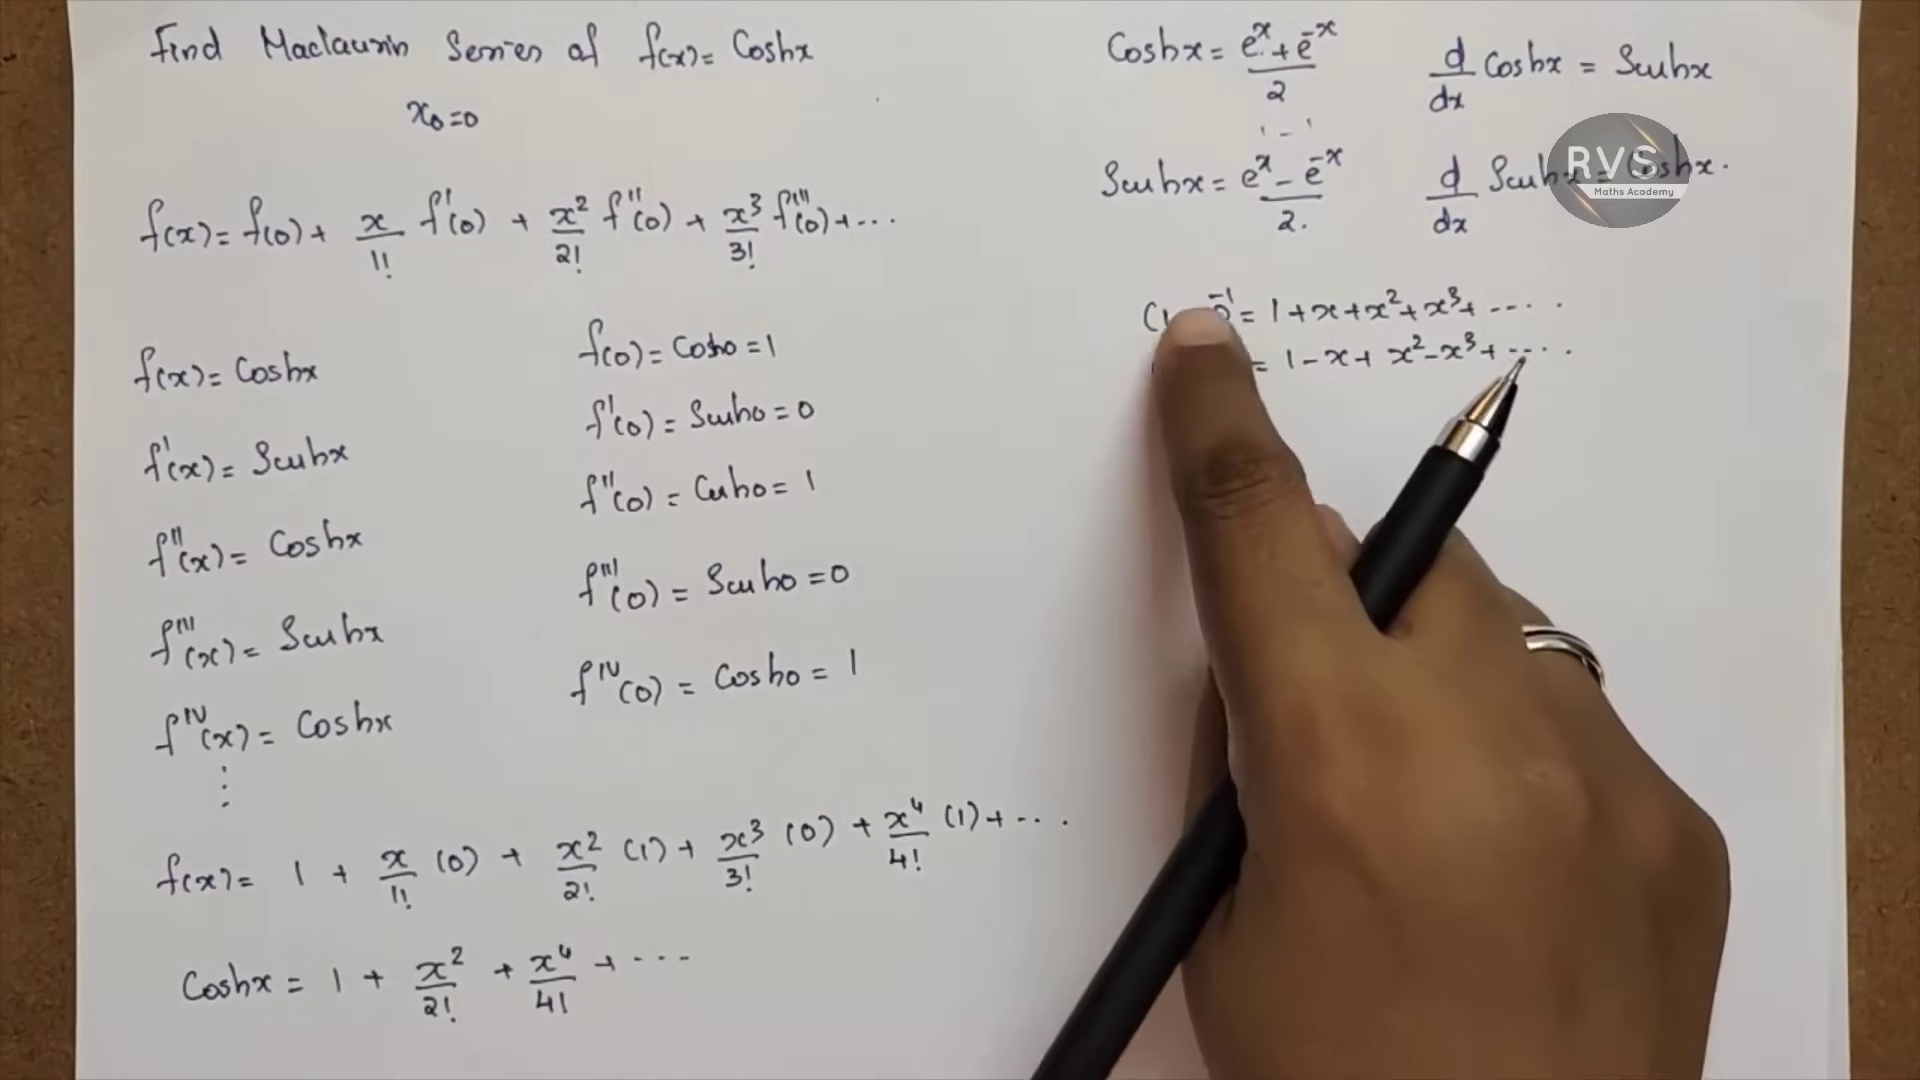 Find Maclaurin Series of f(x) = Coshx
x₀=0
f(x) = f(0) + x/1! f'(0) + x²/2! f''(0) + x³/3! f'''(0) + ...
f(x) = Coshx
f'(x) = Sinhx
f''(x) = Coshx
f'''(x) = Sinhx
f^IV(x) = Coshx
⋮
f(0) = Cosh0 = 1
f'(0) = Sinh0 = 0
f''(0) = Cosh0 = 1
f'''(0) = Sinh0 = 0
f^IV(0) = Cosh0 = 1
f(x) = 1 + x/1! (0) + x²/2! (1) + x³/3! (0) + x⁴/4! (1) + ...
Coshx = 1 + x²/2! + x⁴/4! + ...
Coshx = (e^x + e^-x)/2
d/dx Coshx = Sinhx
Sinhx = (e^x - e^-x)/2.
d/dx Sinhx = Coshx.
RVS
Maths Academy
= 1 + x + x² + x³ + .....
= 1 - x + x² - x³ + .....